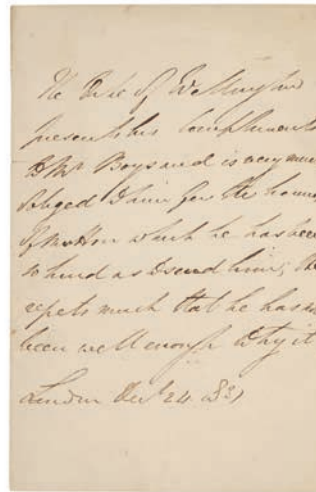 The Duke of Wellington
presents his Compliments
to Mr Boys and is very much
obliged to him for the haunch
of Mutton which he has been
so kind as to send him; He
regrets much that he has not
been well enough to try it
London Decr 24 1831